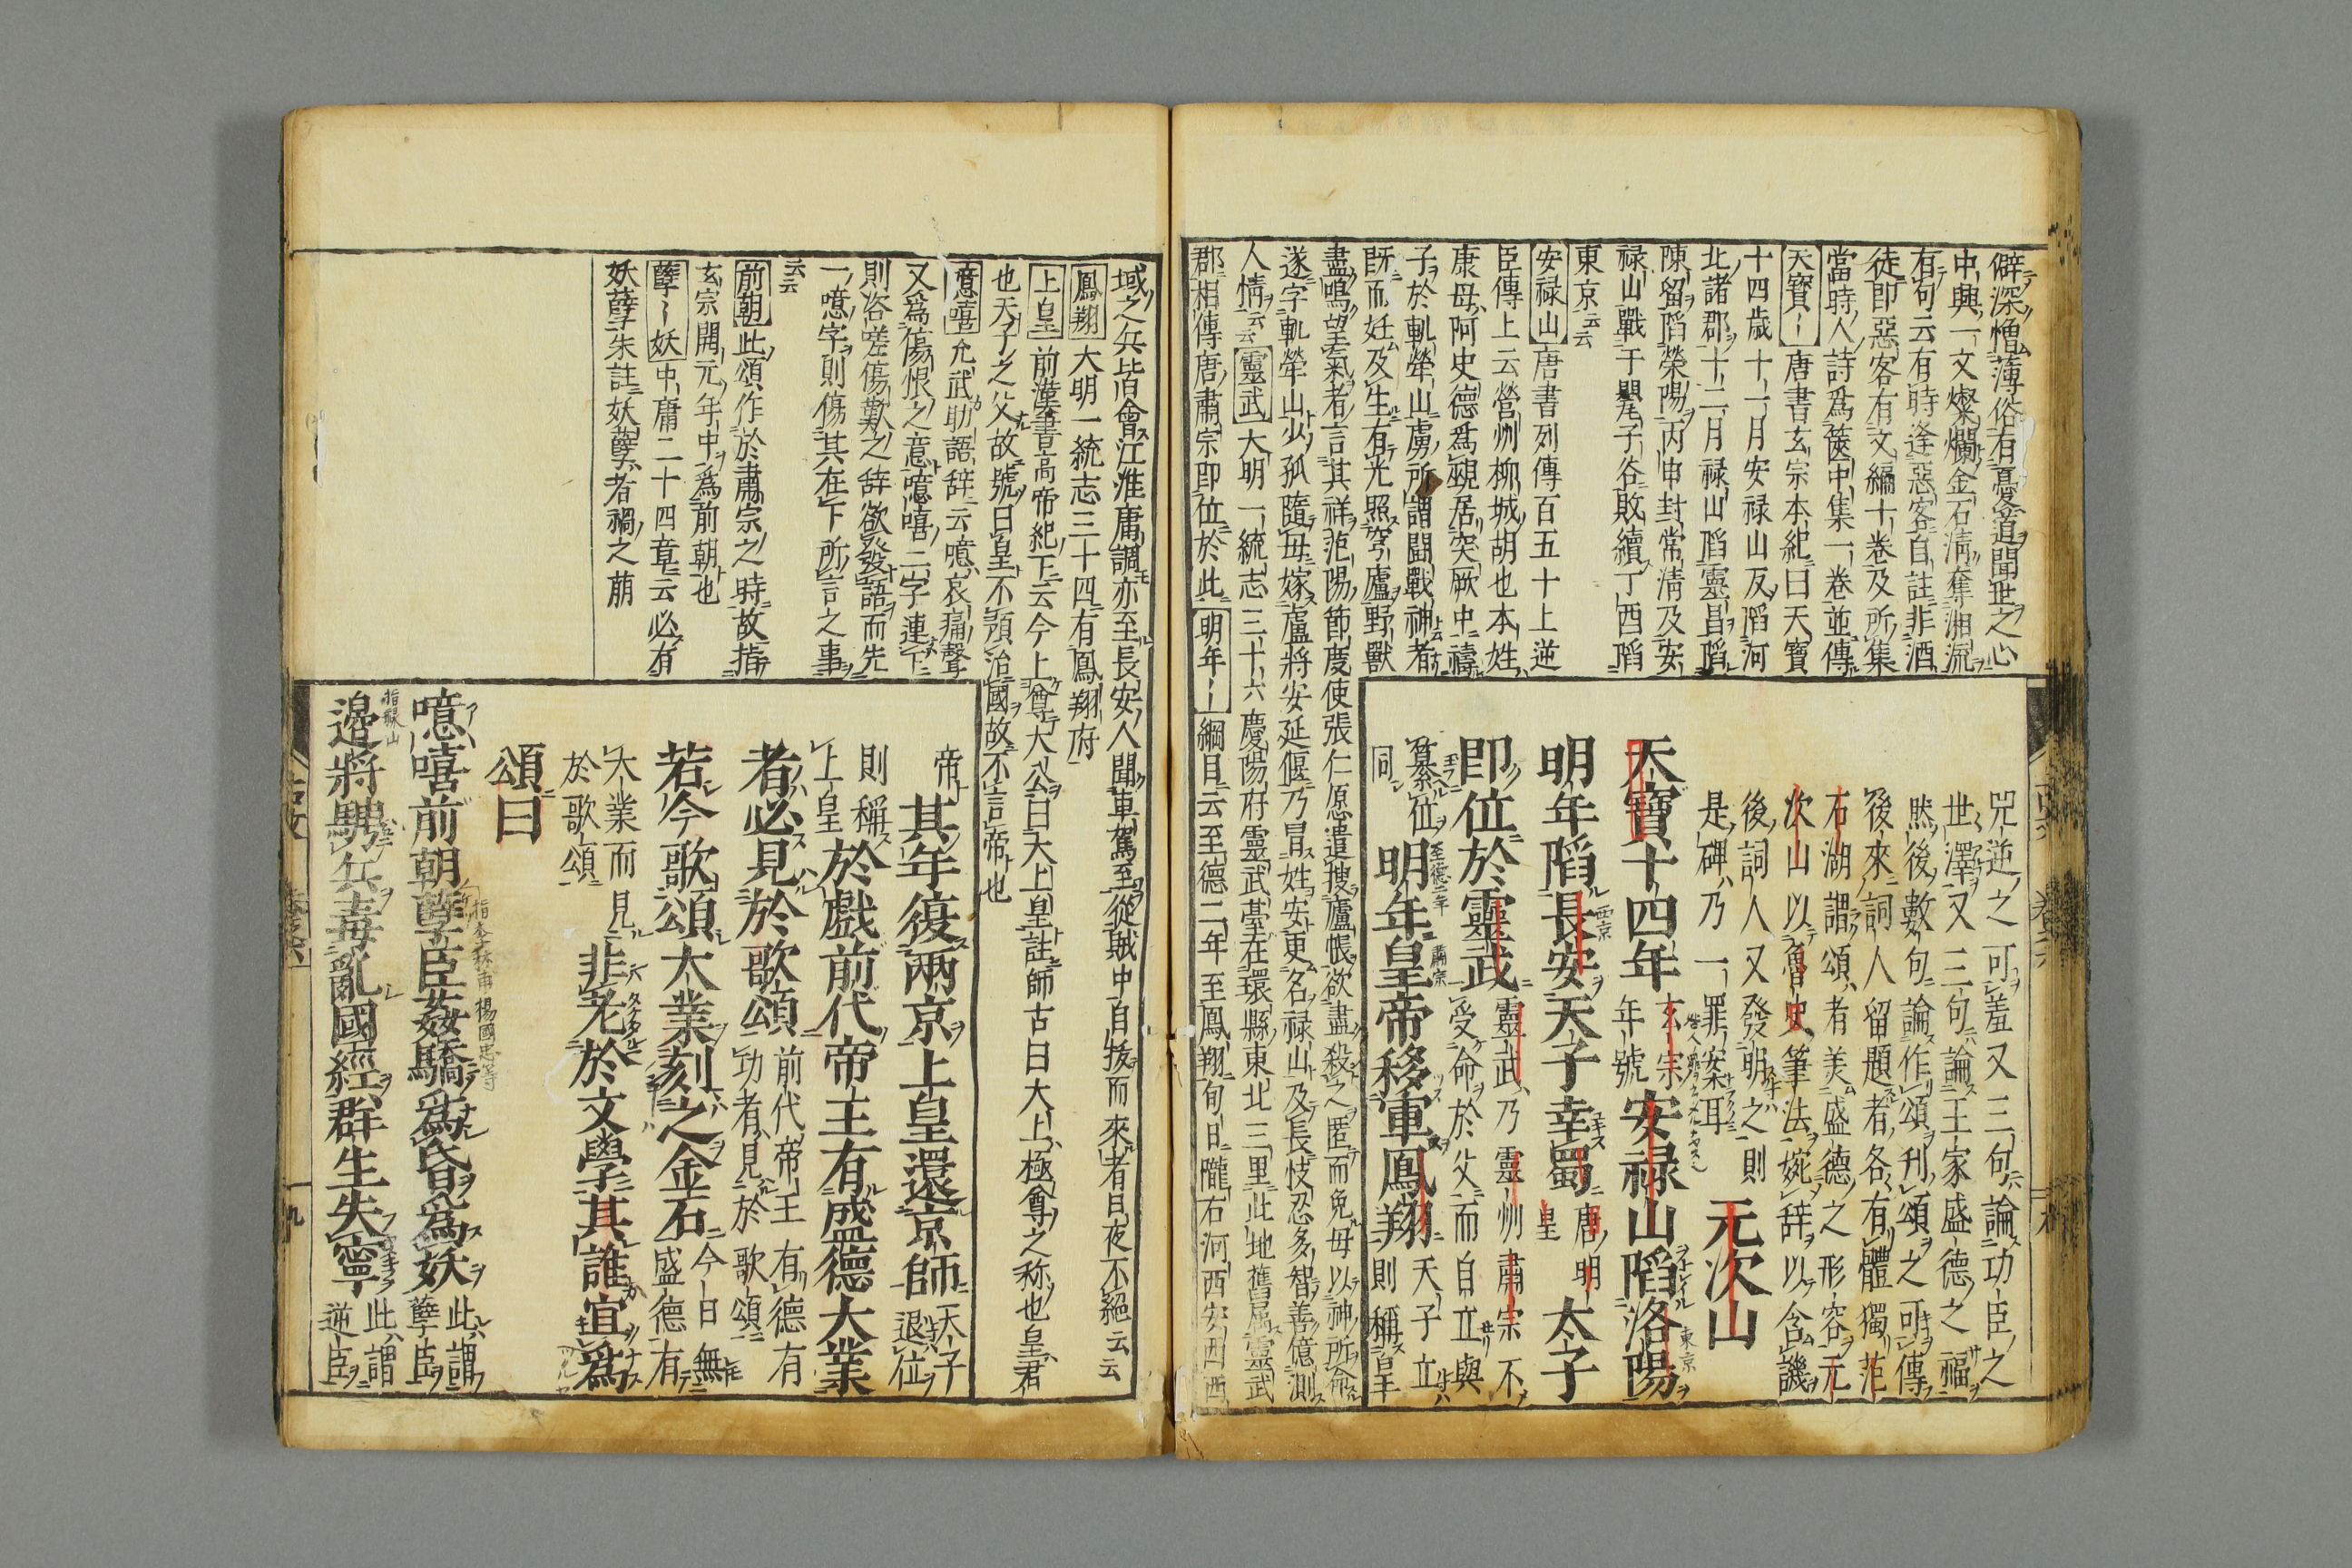 僻深憎薄俗有憂道閔世之心
中興一文燦爛金石清奪湘流
有句云有時逢惡客自註非酒
徒即惡客有文編十卷及所集
當時人詩爲篋中集一卷並傳
天寶〻唐書玄宗本紀曰天寶
十四歳十一月安禄山反陷河
北諸郡十二月禄山陷靈昌陷
陳留陷榮陽丙申封常清及安
禄山戰于甖子谷敗績丁酉陷
東京云云
安禄山唐書列傳百五十上逆
臣傳上云營州柳城胡也本姓
康母阿史德爲覡居突厥中禱
子於軋犖山虜所謂鬪戰神者
既而妊及生有光照穹廬野獸
盡鳴望氣者言其祥范陽節度使張仁愿遣搜廬帳欲盡殺之匿而免母以神所命
遂字軋犖山少孤隨母嫁虜將安延偃乃冒姓安更名禄山及長忮忍多智善億測
人情云云靈武大明一統志三十六慶陽府靈武臺在環縣東北三里此地舊屬靈武
郡相傳唐肅宗即位於此明年〻綱目云至德二年至鳳翔旬日隴右河西安西西
咒逆之可羞又三句論功臣之
世澤又三句論王家盛德之福
然後數句論作頌刊頌之可傳
後來詞人留題者各有體獨范
石湖謂頌者美盛德之形容元
次山以魯史筆法婉辞以含譏
後詞人又發明之則
是碑乃一罪案耳
元次山
天寶十四年玄宗年號安禄山陷洛陽
東京
明年陷長安天子幸蜀唐明皇太子
西京
即位於靈武靈武乃靈州肅宗不受命於父而自立與
簒位同明年皇帝移軍鳳翔天子立則稱皇
至德二年
肅宗
域之兵皆會江淮庸調亦至長安人聞車駕至從賊中自抜而來者日夜不絕云云
鳳翔大明一統志三十四有鳳翔府
上皇前漢書高帝紀下云今上尊大公曰大上皇註師古曰大上極尊之称也皇君
也天子之父故號曰皇不預治國故不言帝也
噫嘻允武助語辞云噫哀痛聲
又爲傷恨之意噫嘻二字連下
則咨嗟傷歎之辞欲發語而先
一噫字則傷其在下所言之事
云云
前朝此頌作於肅宗之時故指
玄宗開元年中爲前朝也
孽〻妖中庸二十四章云必有
妖孽朱註妖孽者禍之萠
帝其年復兩京上皇還京師天子退位
則稱上皇於戲前代帝王有盛德大業
者必見於歌頌前代帝王有德有功者見於歌頌
若今歌頌大業刻之金石今日無盛德有
大業而見於歌頌非老於文學其誰宜爲
頌曰
噫嘻前朝孽臣姦驕爲昏爲妖此謂孽臣
指李林甫楊國忠等
邉將騁兵毒亂國經群生失寧此謂逆臣
指祿山
九